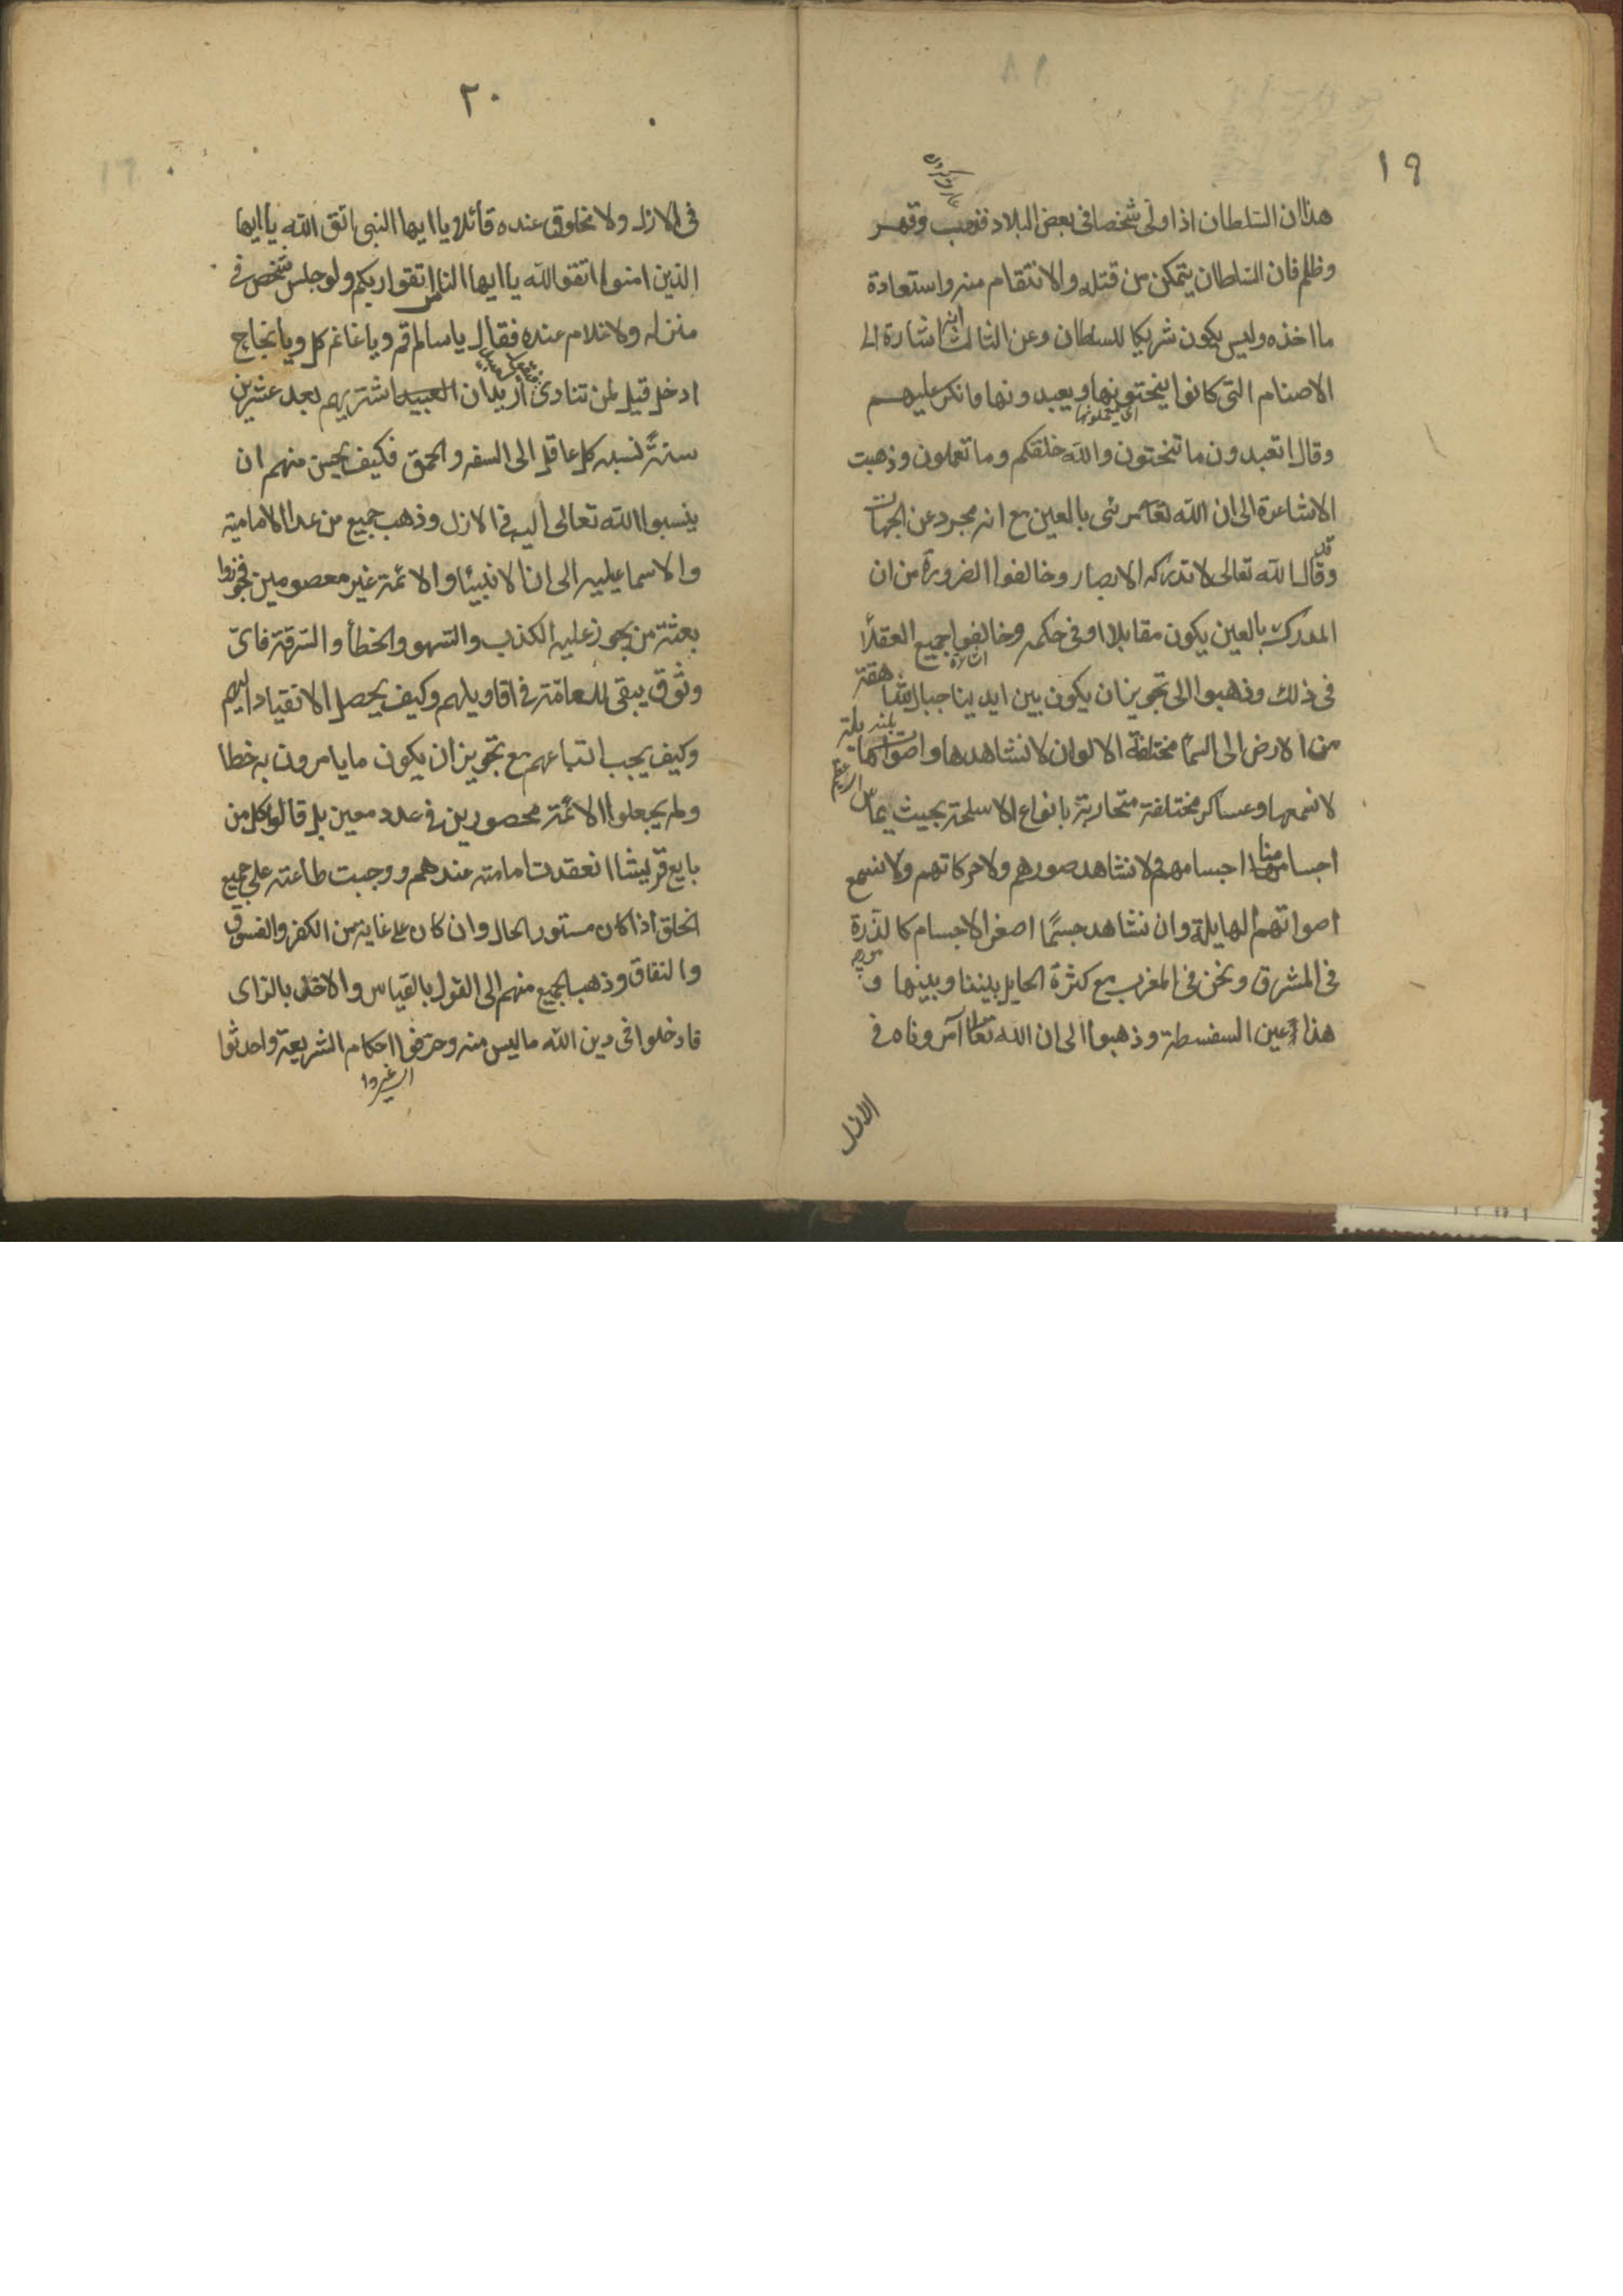 ١٩
هذا ان السلطان اذا ولى شخصا فى بعض البلاد فنهب وقهر
وظلم فان السلطان يتمكن من قتله والانتقام منه واستعادة
ما اخذه وليس يكون شريكا للسلطان وعن الثالث انه اشارة الى
الاصنام التى كانوا ينحتونها ويعبدونها فانكر عليهم
وقال اتعبدون ما تنحتون والله خلقكم وما تعملون وذهبت
الاشاعرة الى ان الله تعا مرئى بالعين مع انه مجرد عن الجهات
وقد قال الله تعالى لا تدركه الابصار وخالفوا الضرورة من ان
المدرك بالعين يكون مقابلا او فى حكمه وخالفوا جميع العقلاء
فى ذلك وذهبوا الى تجويز ان يكون بين ايدينا جبال شاهقة
من الارض الى السماء مختلفة الالوان لا نشاهدها واصوات هايلة
لا نسمعها وعساكر مختلفة متحاربة بانواع الاسلحة بحيث يماس
اجسامنا اجسامهم لا نشاهد صورهم ولا حركاتهم ولا نسمع
اصواتهم الهايلة وان نشاهد جسما اصغر الاجسام كالذرة
فى المشرق ونحن فى المغرب مع كثرة الحايل بيننا وبينها و
هذا عين السفسطة وذهبوا الى ان الله تعالى آمر وناه فى
الازل
٢٠
فى الازل ولا مخلوق عنده قائلا يا ايها النبى اتق الله يا ايها
الذين امنوا اتقوا الله يا ايها الناس اتقوا ربكم ولو جلس شخص فى
منزله ولا غلام عنده فقال يا سالم قم ويا غانم كل ويا نجاح
ادخل قيل لمن تنادى اريد ان العبيد اشتريهم بعد عشرين
سنة نسبه كل عاقل الى السفه والحمق فكيف يحسن منهم ان
ينسبوا الله تعالى اليه فى الازل وذهب جميع من عدا الامامية
والاسماعيليه الى ان الانبيئا والائمة غير معصومين فجوزوا
بعثة من يجوز عليه الكذب والسهو والخطأ والسرقة فاىّ
وثوق يبقى للعامّة فى اقاويلهم وكيف يحصل الانقياد اليهم
وكيف يجب اتباعهم مع تجويز ان يكون ما يامرون به خطا
ولم يجعلوا الائمة محصورين فى عدد معين بل قالوا كل من
بايع قريشا انعقدت امامته عندهم ووجبت طاعته على جميع
الخلق اذا كان مستور الحال وان كان على غاية من الكفر والفسوق
والنفاق وذهب الجميع منهم الى القول بالقياس والاخذ بالراى
فادخلوا فى دين الله ما ليس منه وحرفوا احكام الشريعة واحدثوا
اى غيروا